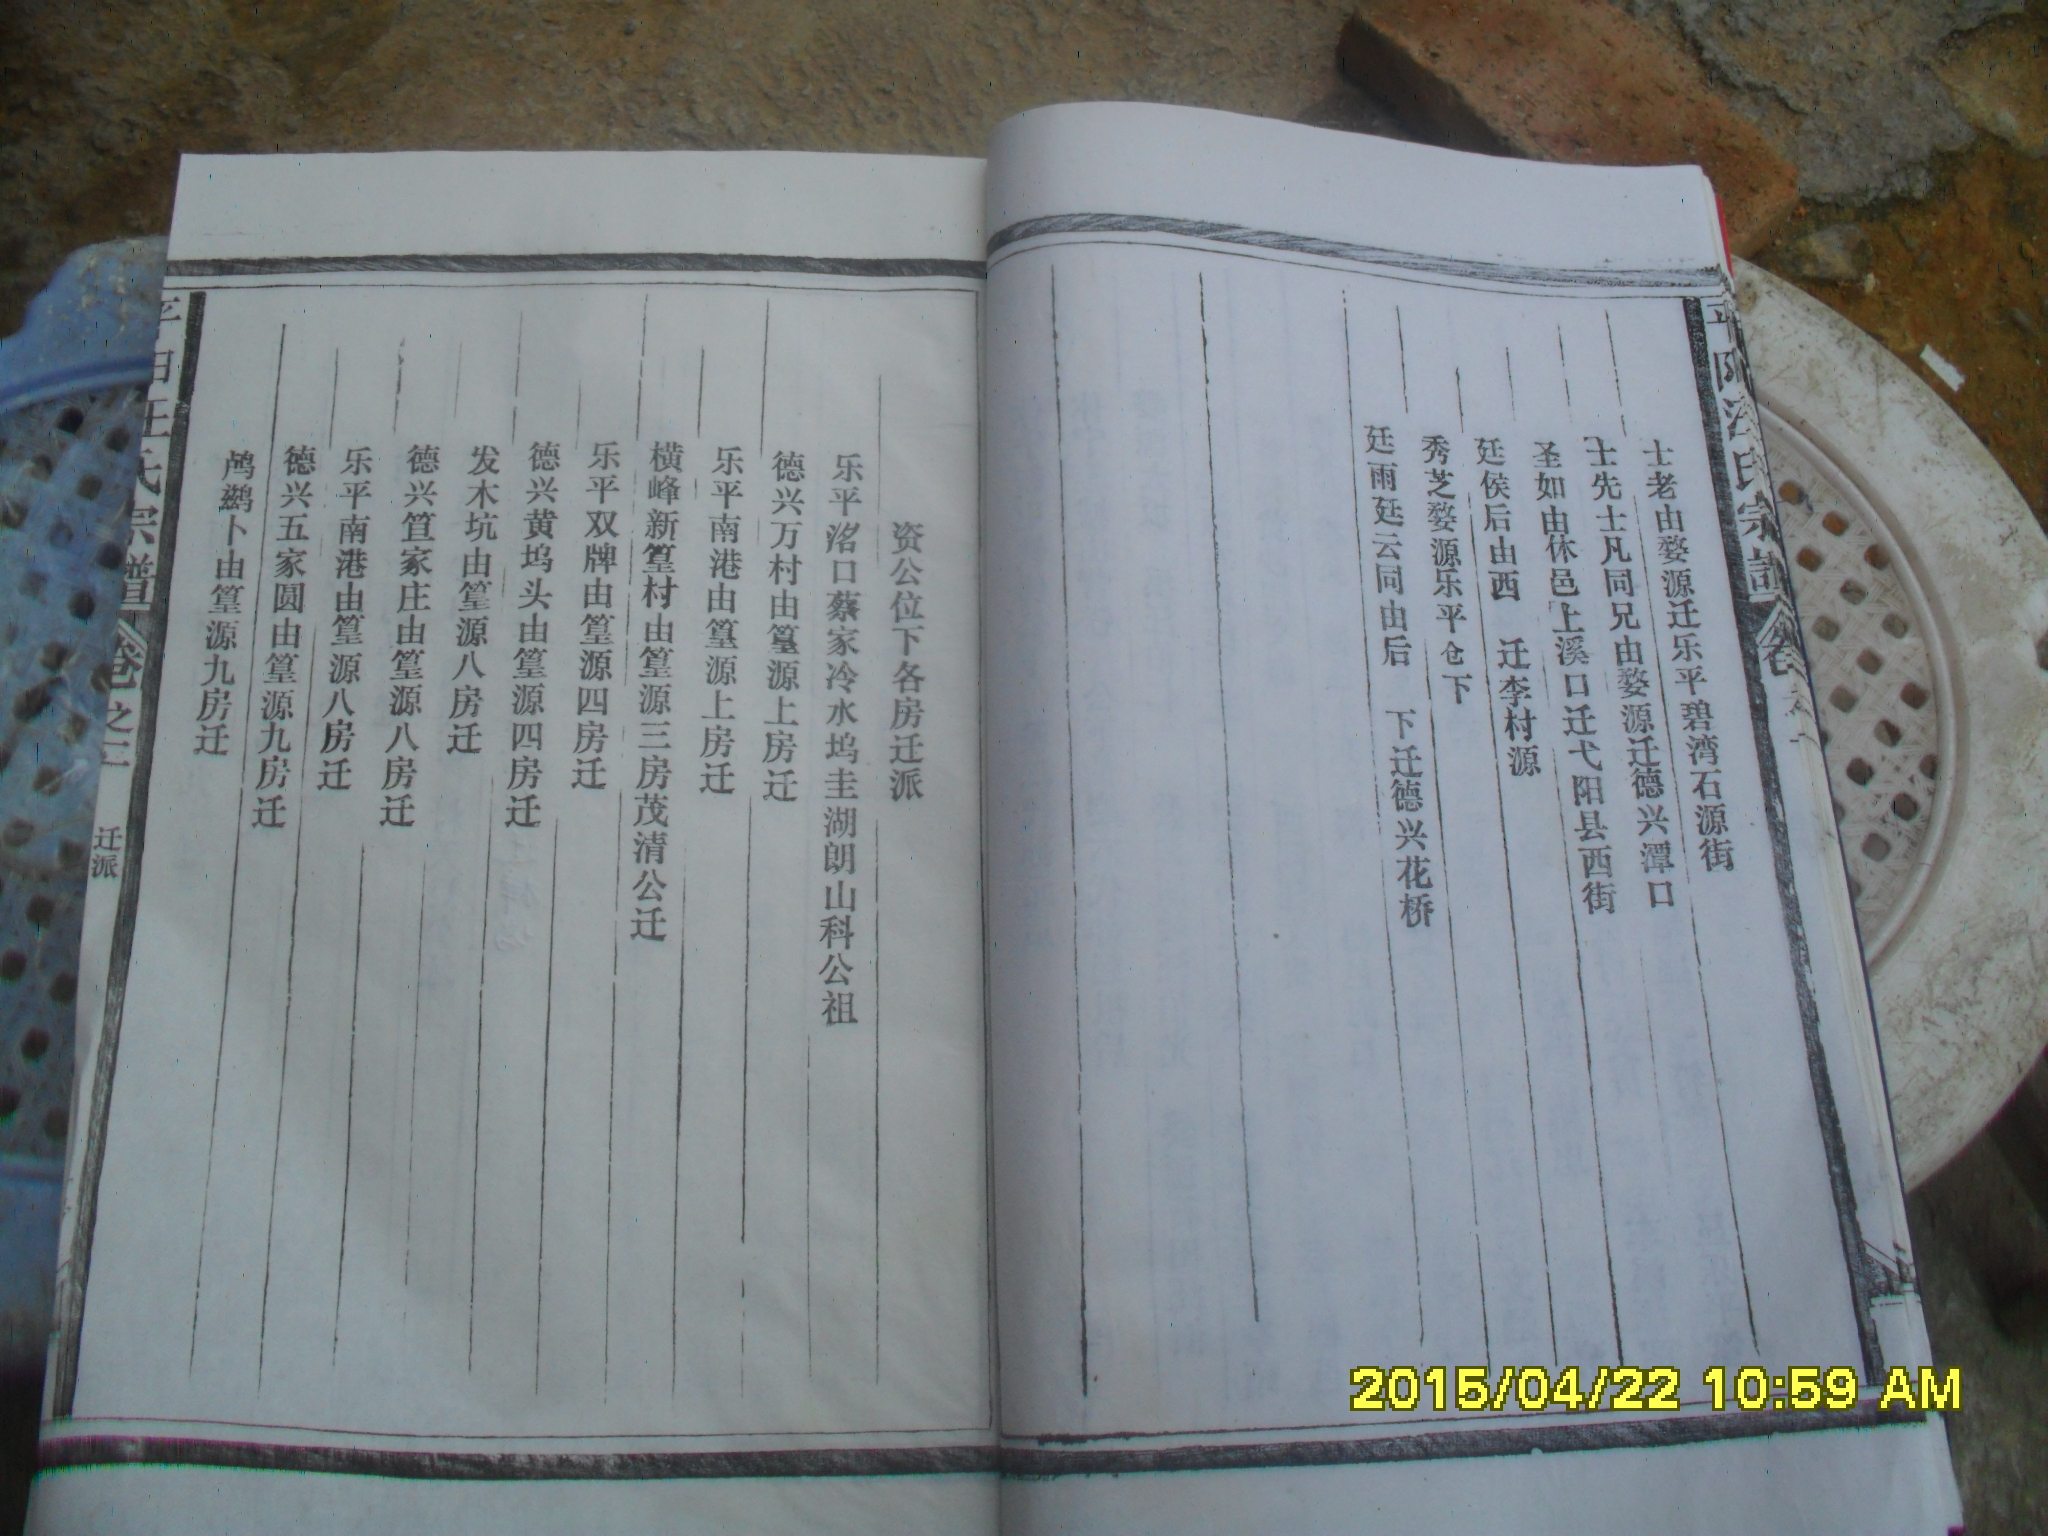 士老由婺源迁乐平碧湾石源街
士先士凡同兄由婺源迁德兴潭口
圣如由休邑上溪口迁弋阳县西街
廷侯后由西 迁李村源
秀芝婺源乐平仓下
廷雨廷云同由后 下迁德兴花桥
资公位下各房迁派
乐平洺口蔡家冷水坞圭湖朗山科公祖
德兴万村由篁源上房迁
乐平南港由篁源上房迁
横峰新篁村由篁源三房茂清公迁
乐平双牌由篁源四房迁
德兴黄坞头由篁源四房迁
发木坑由篁源八房迁
德兴笪家庄由篁源八房迁
乐平南港由篁源八房迁
德兴五家圆由篁源九房迁
鸬鹚卜由篁源九房迁
汪氏宗谱
卷之
迁派
2015/04/22 10:59 AM